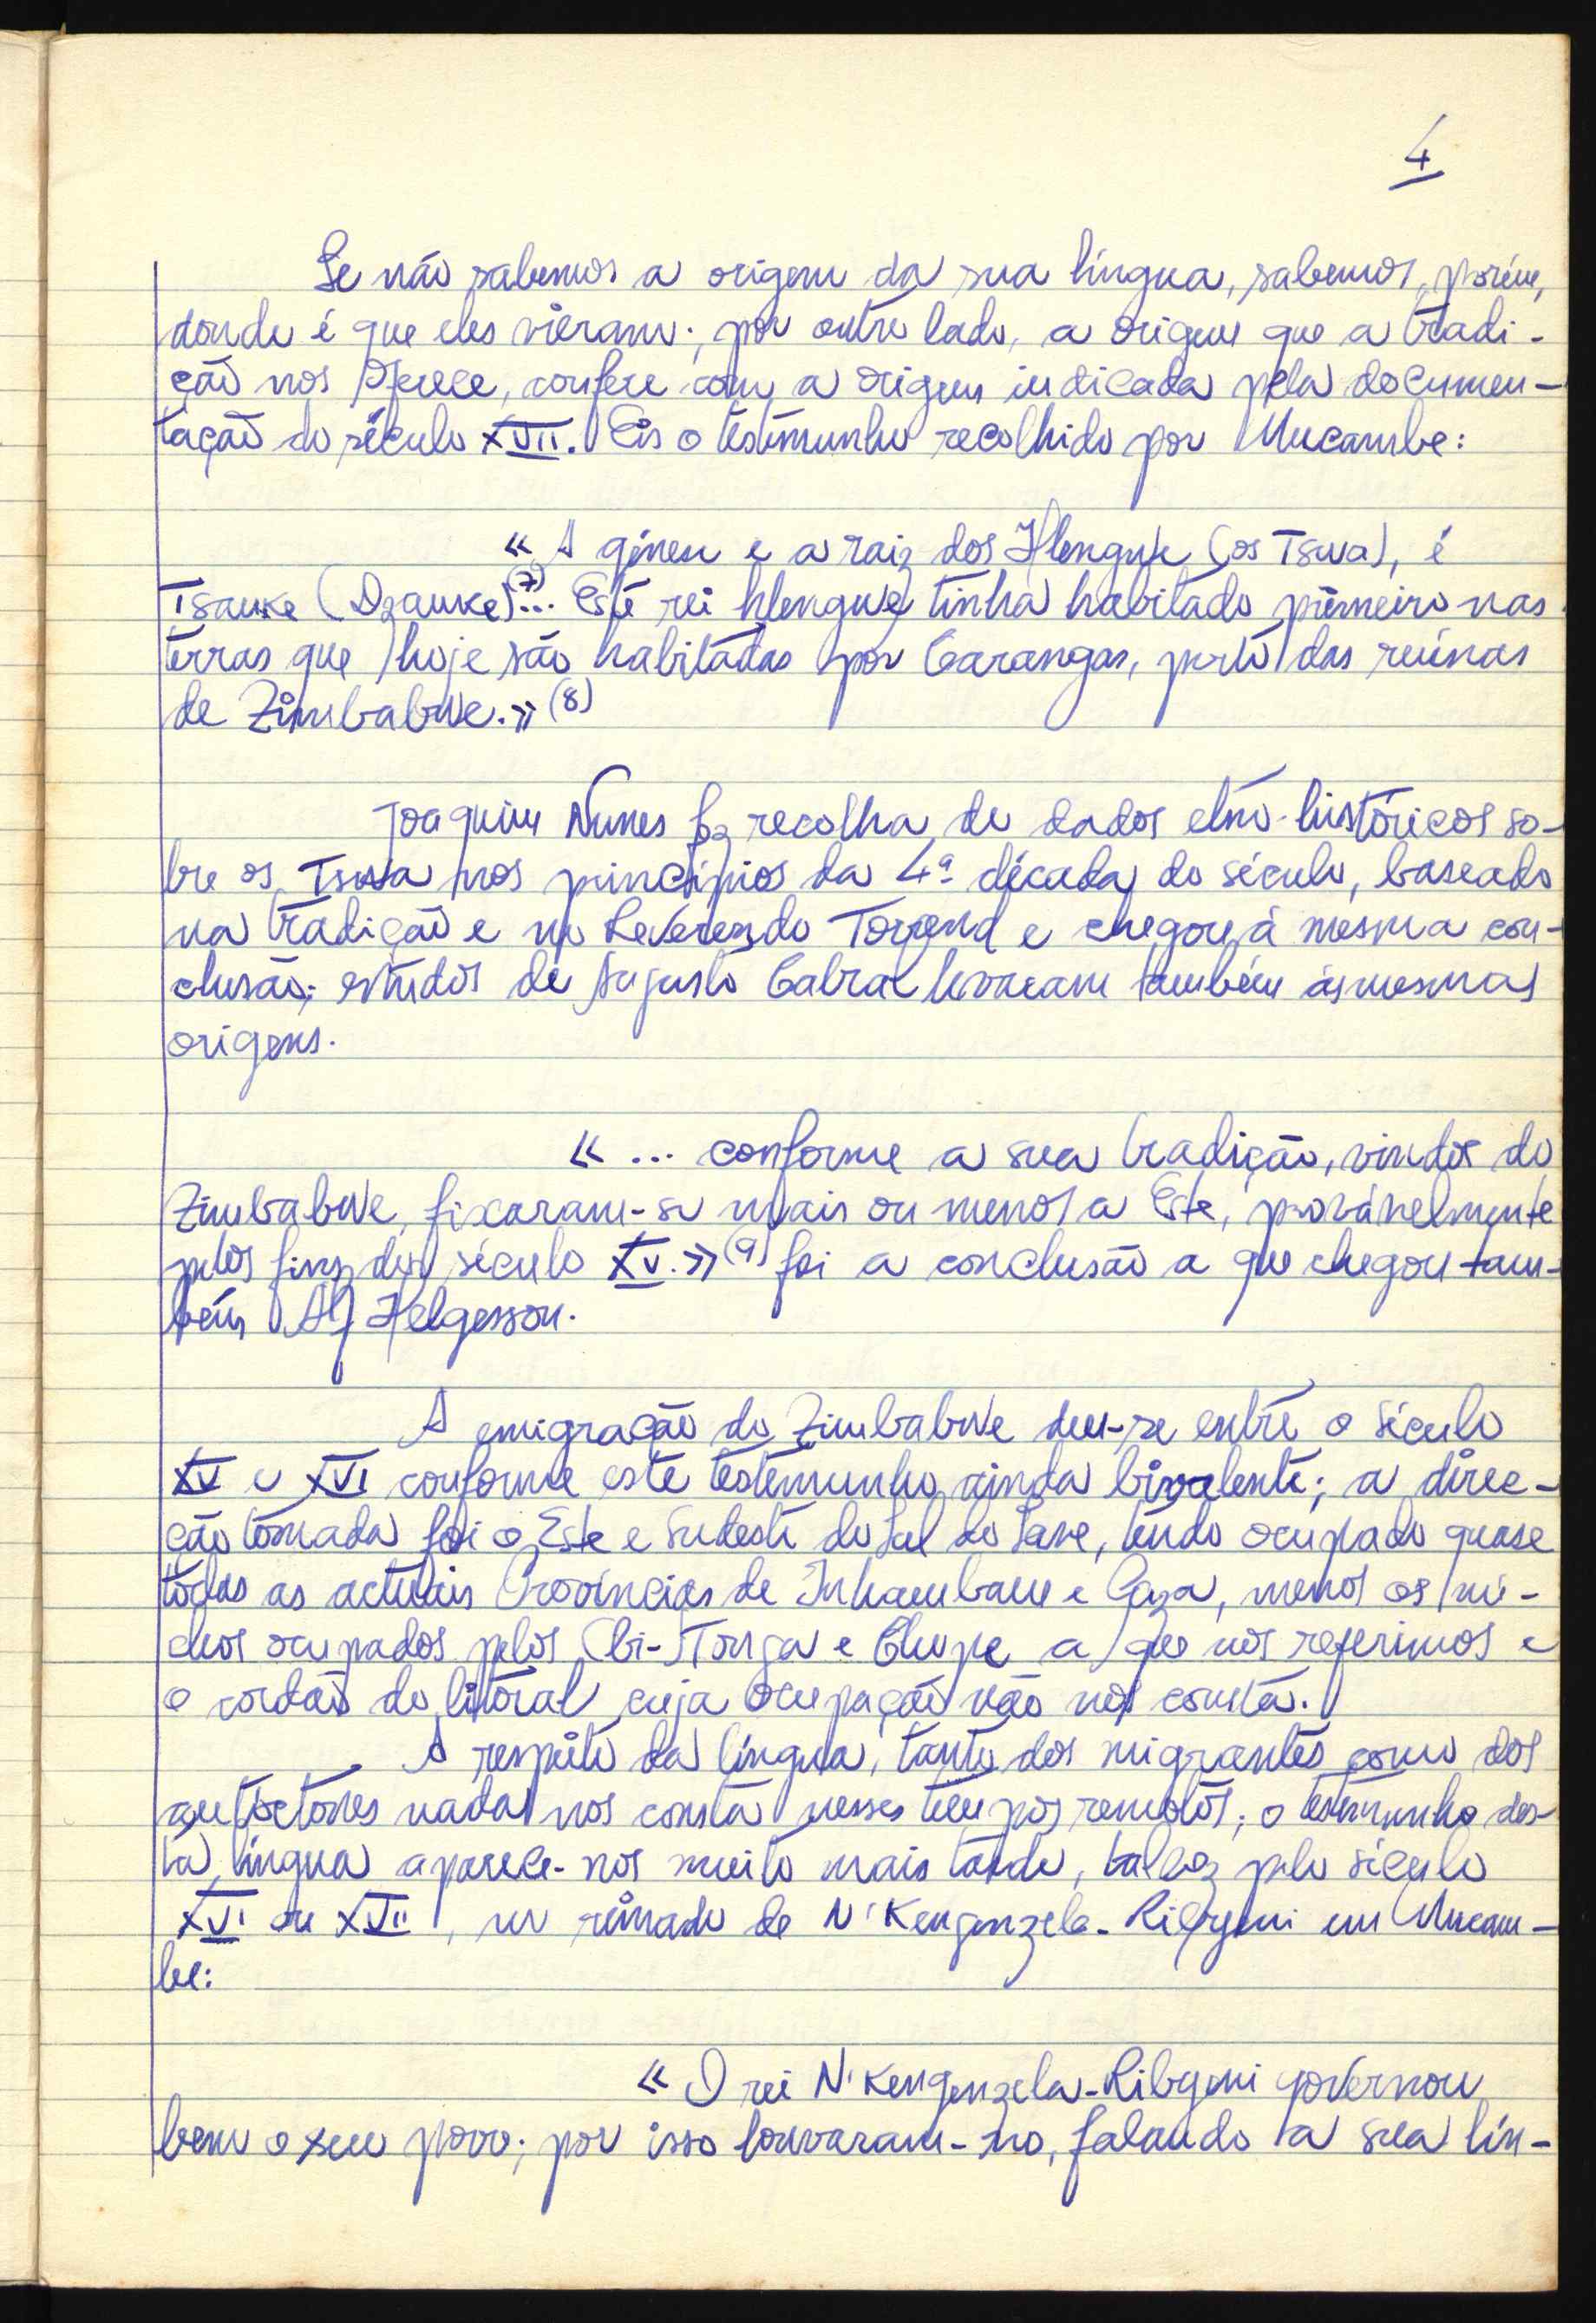 4
Se não sabemos a origem da sua língua, sabemos, porém,
donde é que eles vieram; por outro lado, a origem que a tradi-
ção nos oferece, confere com a origem indicada pela documen-
tação do século XVII. Eis o testemunho recolhido por Mucambe:
« A génese e a raiz dos Hlengwe (os Tswa), é
Tsauke (Dzauke)(7)... Este rei hlengwe tinha habitado primeiro nas
terras que hoje são habitadas por Carangas, perto das ruínas
de Zimbabwe.» (8)
Joaquim Nunes fez recolha de dados etno-históricos so-
bre os Tswa nos princípios da 4ª década do século, baseado
na tradição e no Reverendo Torrend e chegou à mesma con-
clusão; estudos de Augusto Cabral levaram também às mesmas
origens.
« ... conforme a sua tradição, vindos do
Zimbabwe, fixaram-se mais ou menos a Este, provàvelmente
pelos fins do século XV.» (9) foi a conclusão a que chegou tam-
bém Alf Helgesson.
A emigração do Zimbabwe deu-se entre o século
XV e XVI conforme este testemunho ainda bivalente; a direc-
ção tomada foi o Este e Sudeste do Sul do Save, tendo ocupado quase
todas as actuais Províncias de Inhambane e Gaza, menos os ni-
chos ocupados pelos Bi-Tonga e Chope a que nos referimos e
o cordão do litoral cuja ocupação não nos consta.
A respeito da língua, tanto dos migrantes como dos
autóctones nada nos consta nesses tempos remotos; o testemunho des-
ta língua aparece-nos muito mais tarde, talvez pelo século
XVI ou XVII, no reinado de N'Kengenzela-Ribyeni em Mucam-
be:
« O rei N'Kengenzela-Ribyeni governou
bem o seu povo; por isso louvaram-no, falando a sua lín-